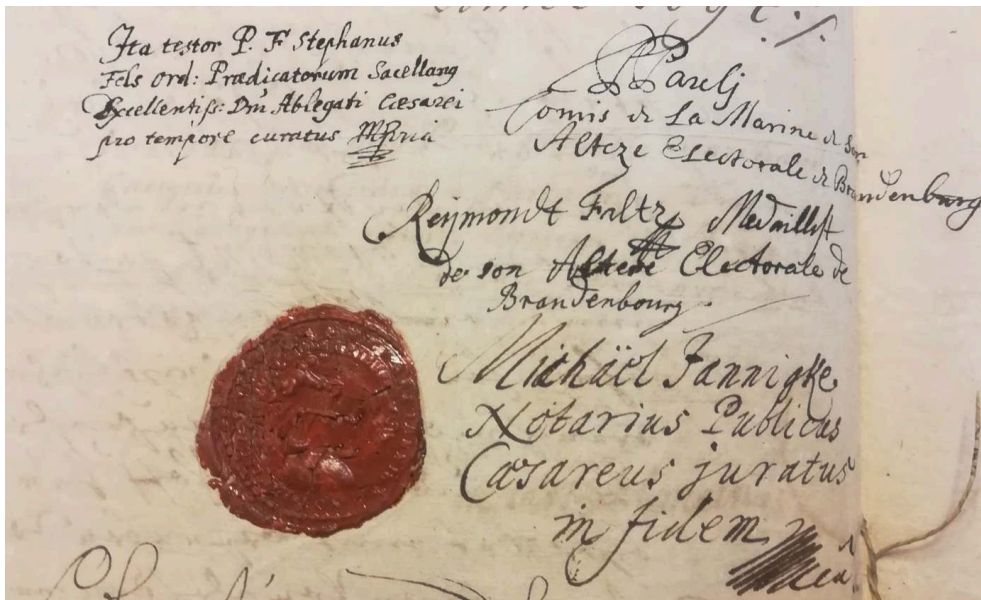 Ita testor P. F Stephanus
Fels ord: Prædicatorum Sacellang
Excellentiss: Dni Ablegati Cæsarei
pro tempore curatus
Paulj
Comis de La Marine de Son
Alteze Electorale de Brandenburg
Reijmondt Faltz Medaillist
de son Altesse Electorale de
Brandenbourg.
Michaël Jannigke
Notarius Publicus
Cæsareus juratus
in fidem